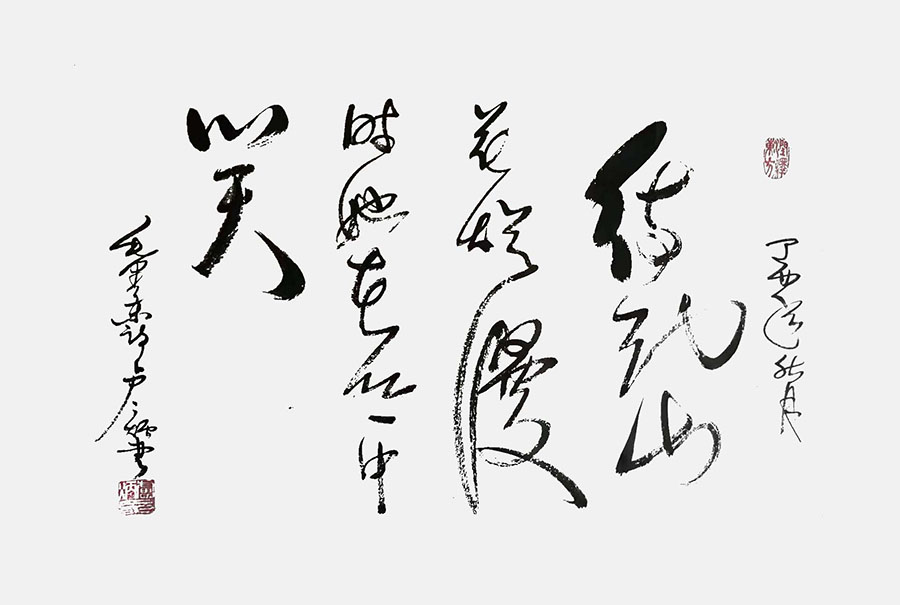 丁酉秋月
待到山
花烂漫
时她在丛中
笑
毛泽东诗 卢书